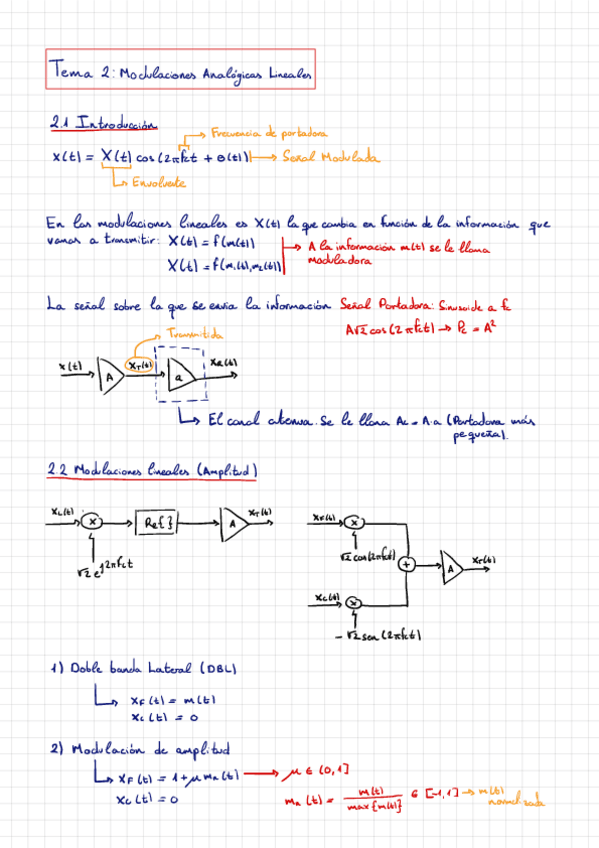 Tema 2: Modulaciones Analógicas Lineales
2.1 Introducción
Frecuencia de portadora
x(t) = X(t) cos(2πfct + θ(t)) → Señal Modulada
Envolvente
En las modulaciones lineales es X(t) la que cambia en función de la información que
vamos a transmitir: X(t) = f(m(t))
X(t) = f(m1(t), m2(t))
A la información m(t) se le llama
moduladora
La señal sobre la que se envía la información Señal Portadora: Sinusoide a fc
A√2 cos(2πfct) → Pc = A²
Transmitida
x(t) A xT(t) a xR(t)
El canal atenua. Se le llama Ac = A·a (Portadora más
pequeña).
2.2 Modulaciones lineales (Amplitud)
xL(t) x Re{ } A xT(t)
√2 e^j2πfct
xF(t) x
√2 cos(2πfct)
+ A xT(t)
xC(t) x
- √2 sen(2πfct)
1) Doble banda Lateral (DBL)
xF(t) = m(t)
xC(t) = 0
2) Modulación de amplitud
xF(t) = 1 + μ mn(t) → μ ∈ (0,1]
xC(t) = 0
mn(t) = m(t) / max{m(t)} ∈ [-1,1] → m(t)
normalizada